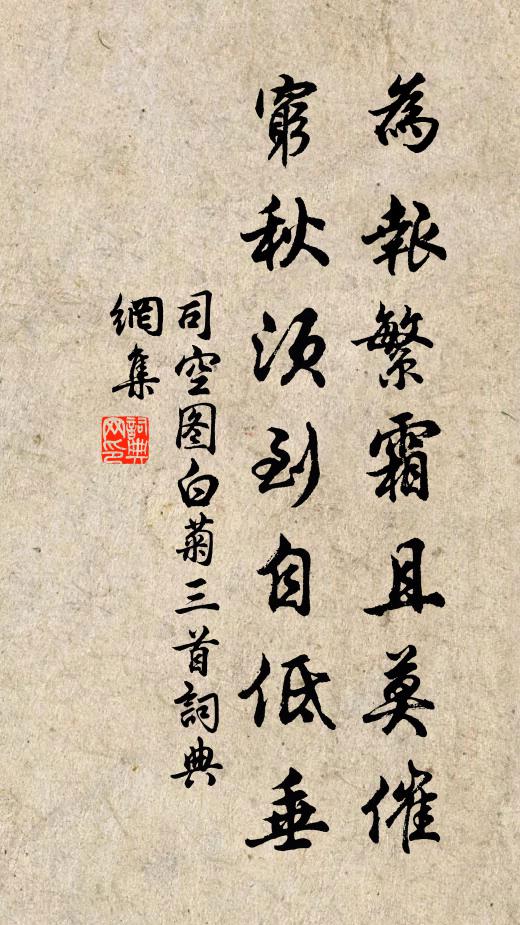 為報繁霜且莫催
窮秋須到自低垂
司空图白菊三首詞典
網集
詞典網印